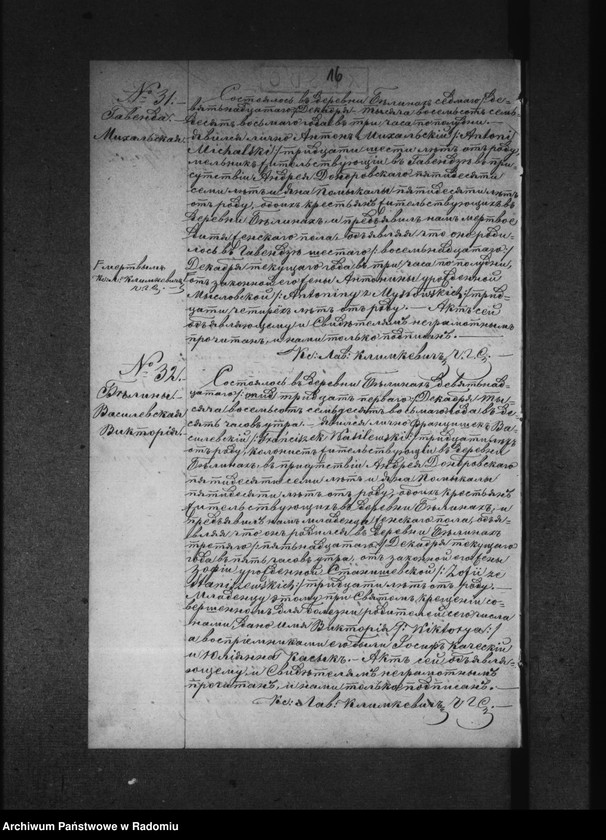 16
№ 31.
Гавенда.
Михальская
Состоялось въ деревни Бѣлинахъ седмаго/девятьнадцатаго/Декабря тысяча восемьсотъ семьдесятъ восьмаго года въ три часа пополудни. —
Явился лично Антонъ Михальскій /:Antoni
Michalski:/ тридцати шести лѣтъ отъ роду,
мельникъ жительствующій въ Гавендзѣ въ присутствіи Андрея Домбровскаго пятидесяти
семи лѣтъ и Яна Помыкалы пятидесяти лѣтъ
отъ роду, обоихъ крестьянъ жительствующихъ въ
деревни Бѣлинахъ и предъявилъ намъ мертвое
дитя женскаго пола, объявляя что оно родилось въ Гавендзѣ шестаго/:восемьнадцатаго:/
Декабря текущаго года въ три часа по полудни,
отъ законной его жены Антонины урожденной
Мысловской /:Antoniny z Mysłowskich:/ тридцати четырехъ лѣтъ отъ роду. — Актъ сей
объявляющему и Свидѣтелямъ неграмотнымъ
прочитанъ, и нами только подписанъ. —
Кс: Лав: Климкевичъ У.Г.С.
№ 32.
Бѣлины.
Василевская
Викторія.
Состоялось въ деревни Бѣлинахъ девятьнадцатаго /: тридцать перваго:/ Декабря тысяча восемьсотъ семьдесятъ восьмаго года въ десять часовъ утра. — Явился лично Францишекъ Василевскій /:Franciszek Wasilewski:/ тридцати лѣтъ
отъ роду, колонистъ жительствующій въ деревни
Бѣлинахъ, въ присутствіи Андрея Домбровскаго
пятидесяти семи лѣтъ и Яна Помыкалы
пятидесяти лѣтъ отъ роду, обоихъ крестьянъ
жительствующихъ въ деревни Бѣлинахъ, и
предъявилъ намъ младенца женскаго пола, объявляя что онъ родился въ деревни Бѣлинахъ
третяго /:пятьнадцатаго:/ Декабря текущаго
года въ пять часовъ утра, отъ законной его жены
Зофіи урожденной Станишевской /:Zofii ze
Staniszewskich:/ тридцати лѣтъ отъ роду. —
Младенцу этому при Святомъ крещеніи совершенномъ для болезни родителей сего числа
нами, дано имя Викторія /:Wiktorya:/
а воспріемниками его были Іосифъ
и Юліянна Касыкъ. — Актъ сей объявляющему и Свидѣтелямъ неграмотнымъ
прочитанъ, и нами только подписанъ. —
Кс: Лав: Климкевичъ У.Г.С.
Archiwum Państwowe w Radomiu